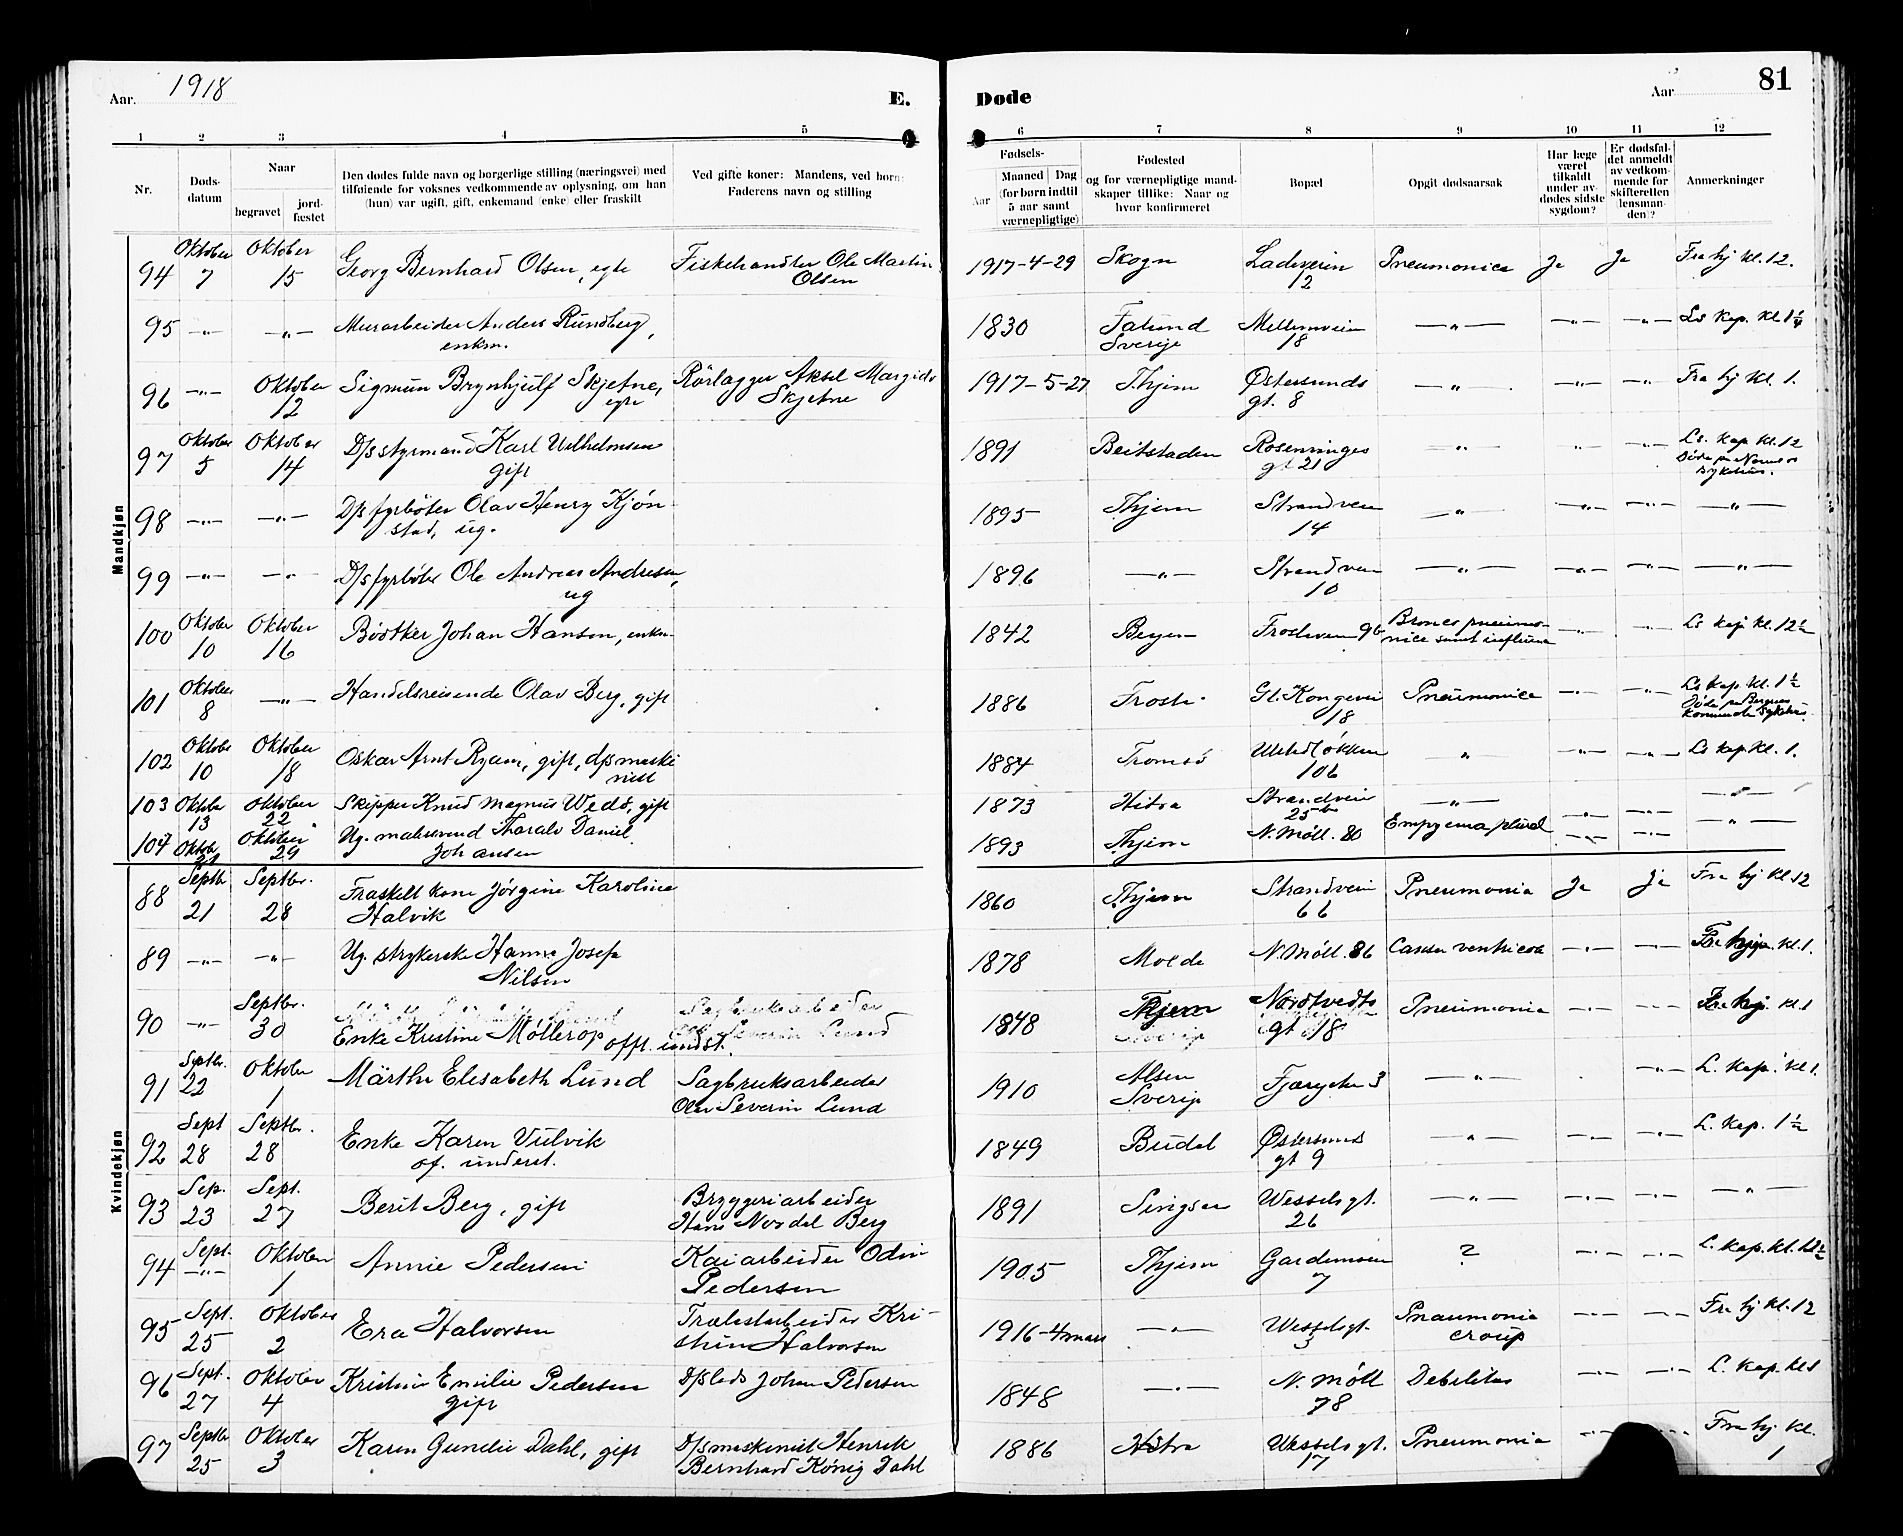 Aar. 1918
E. Døde
Aar 81
1 2 3 4 5 6 7 8 9 10 11 12
Nr.
Døds-
datum
Naar
begravet
jord-
fæstet
Den dødes fulde navn og borgerlige stilling (næringsvei) med
tilføiende for voksnes vedkommende av oplysning, om han
(hun) var ugift, gift, enkemand (enke) eller fraskilt
Ved gifte koner: Mandens, ved børn:
Faderens navn og stilling
Fødsels-
Aar
Maaned Dag
(for børn indtil
5 aar samt
værnepligtige)
Fødested
og for værnepligtige mand-
skaper tillike: Naar og
hvor konfirmeret
Bopæl
Opgit dødsaarsak
Har læge
været
tilkaldt
under av-
dødes sidste
sygdom?
Er dødsfal-
det anmeldt
av vedkom-
mende for
skifteretten
(lensman-
den)?
Anmerkninger
Mandkjøn
94 Oktober 7 Oktober 15 Georg Bernhard Olsen, egte Fiskehandler Ole Martin Olsen 1917-4-29 Skogn Ladeveien 12 Pneumonica Ja Ja Fra hj kl. 12.
95 -"- -"- Murarbeider Anders Rundberg, enkm. 1830 Falund Sverige Mellemveien 18 -"- -"- -"- Ls kap. kl 1¼
96 -"- Oktober 12 Sigmun Brynhjulf Skjetne, egte Rørlægger Aksel Margido Skjetne 1917-5-27 Thjem Østersunds gt. 8 -"- -"- -"- Fra hj kl. 1.
97 Oktober 5 Oktober 14 D/s styrmand Karl Vilhelmsen gift 1891 Beitstaden Rosenvinges gt 21 -"- -"- -"- Ls. kap kl. 12 Døde sykehus.
98 -"- -"- D/s fyrbøter Olav Henry Kjøn- stad, ug. 1895 Thjem Strandveien 14 -"- -"- -"- -"-
99 -"- -"- D/s fyrbøter Ole Andreas Andresen, ug 1896 -"- Strandveien 10 -"- -"- -"- -"-
100 Oktober 10 Oktober 16 Bødtker Johan Hanson, enkm- 1842 Bergen 96 -"- -"- Ls kap kl. 12½
101 Oktober 8 -"- Handelsreisende Olav Berg, gift 1886 Frosta Gl. Kongevei 18 Pneumonica -"- -"- Ls kap kl. 1½ Døde paa Bergens kommunale Sykehus.
102 Oktober 10 Oktober 18 Oskar Arnt Ryan, gift, d/s maski- nist 1884 Tromsø 106 -"- -"- -"- Ls kap. kl. 1.
103 Oktober 13 Oktober 22 Skipper Knud Magnus Wedø, gift 1873 Hitra Strandveien 25b -"- -"- -"- -"-
104 Oktob. 21 Oktober 29 Ug. Thoralv Daniel Johansen 1893 Thjem N. Møll. 80 Empyema -"- -"- -"-
Kvindekjøn
88 Septbr 21 Septbr. 28 Fraskilt kone Jørgine Karoline Halvik 1860 Thjem Strandveien 66 Pneumonia Ja Ja Fra hj kl 12
89 -"- -"- Ug. strykerske Hanna Josefa Nilsen 1878 Molde N. Møll. 86 Canser ventricola -"- -"- Fra hj. kl. 1.
90 -"- Septbr. 30 Enke Kristine Møllerop offt. undst. Sagbruksarbeider Olav Severin Lund 1848 Thjem Nordtvedts gt 18 Pneumonia -"- -"- Fra hj. kl 1
91 Septbr. 22 Oktober 1 Märtha Elisabeth Lund Sagbruksarbeider Olav Severin Lund 1910 Alsen Sverige Fjærgaten 3 -"- -"- L. kap. kl 1.
92 Sept 28 Septbr. 28 Enke Karen Vulvik of. underst. 1849 Budal Østersunds gt 9 -"- -"- -"- L. kap. 1½
93 Sep. 23 Sept. 27 Berit Berg, gift Bryggeriarbeider Hans Nordal Berg 1891 Singsaa Wesselsgt. 26 -"- -"- -"- -"-
94 Sept. -"- Oktober 1 Annie Pedersen Kaiarbeider Odin Pedersen 1905 Thjem Gardemoen 7 ? -"- -"- L. kap. kl. 12½
95 Sept. 25 Oktober 2 Era Halvorsen Trælastarbeider Kri- stian Halvorsen 1916-4 mars -"- Wesselsgt. 3 Pneumonia croup -"- -"- Fra hj kl. 12
96 Sept. 27 Oktober 4 Kristine Emilie Pedersen gift D/s lods Johan Pedersen 1848 -"- N. Møll 78 Debilitas -"- -"- L. kap. kl 1
97 Septbr 25 Oktober 3 Karen Gundie Dahl, gift D/s maskinist Henrik Bernhard König Dahl 1886 Hitra Wesselsgt. 17 Pneumonia -"- -"- Fra hj kl. 1